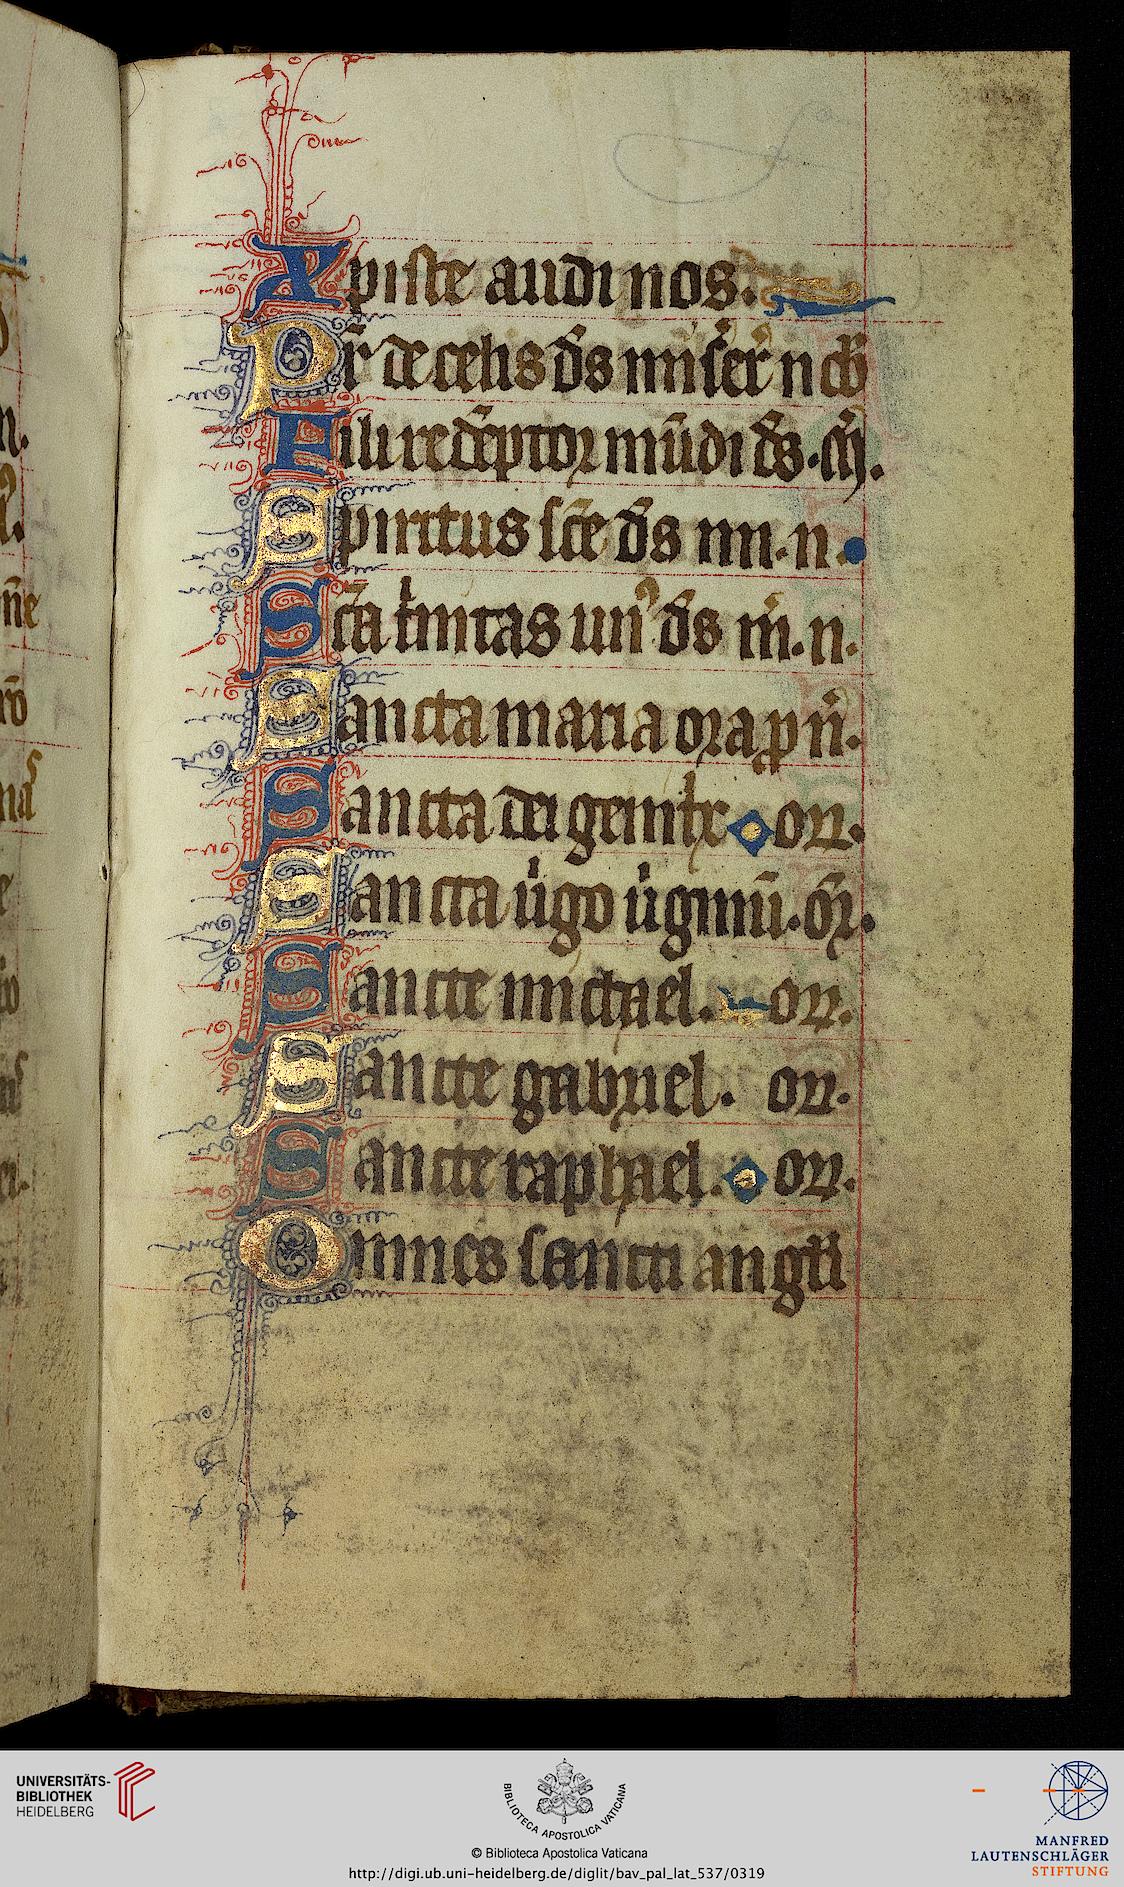 Xpiste audi nos.
Pr̄ de celis ds̄ miser̄ nob̄
Fili redēptor mūdi ds̄. m̄.
Spiritus sc̄e ds̄ mi. n.
Sc̄a tinitas un⁹ ds̄ m̄. n.
Sancta maria ora ꝓ n̄.
Sancta dei genitx. or.
Sancta vigo viginū. or̄.
Sancte michael. or.
Sancte gabriel. or.
Sancte raphael. or.
Omnes sancti angli
UNIVERSITÄTS-
BIBLIOTHEK
HEIDELBERG
BIBLIOTECA APOSTOLICA VATICANA
© Biblioteca Apostolica Vaticana
http://digi.ub.uni-heidelberg.de/diglit/bav_pal_lat_537/0319
MANFRED
LAUTENSCHLÄGER
STIFTUNG